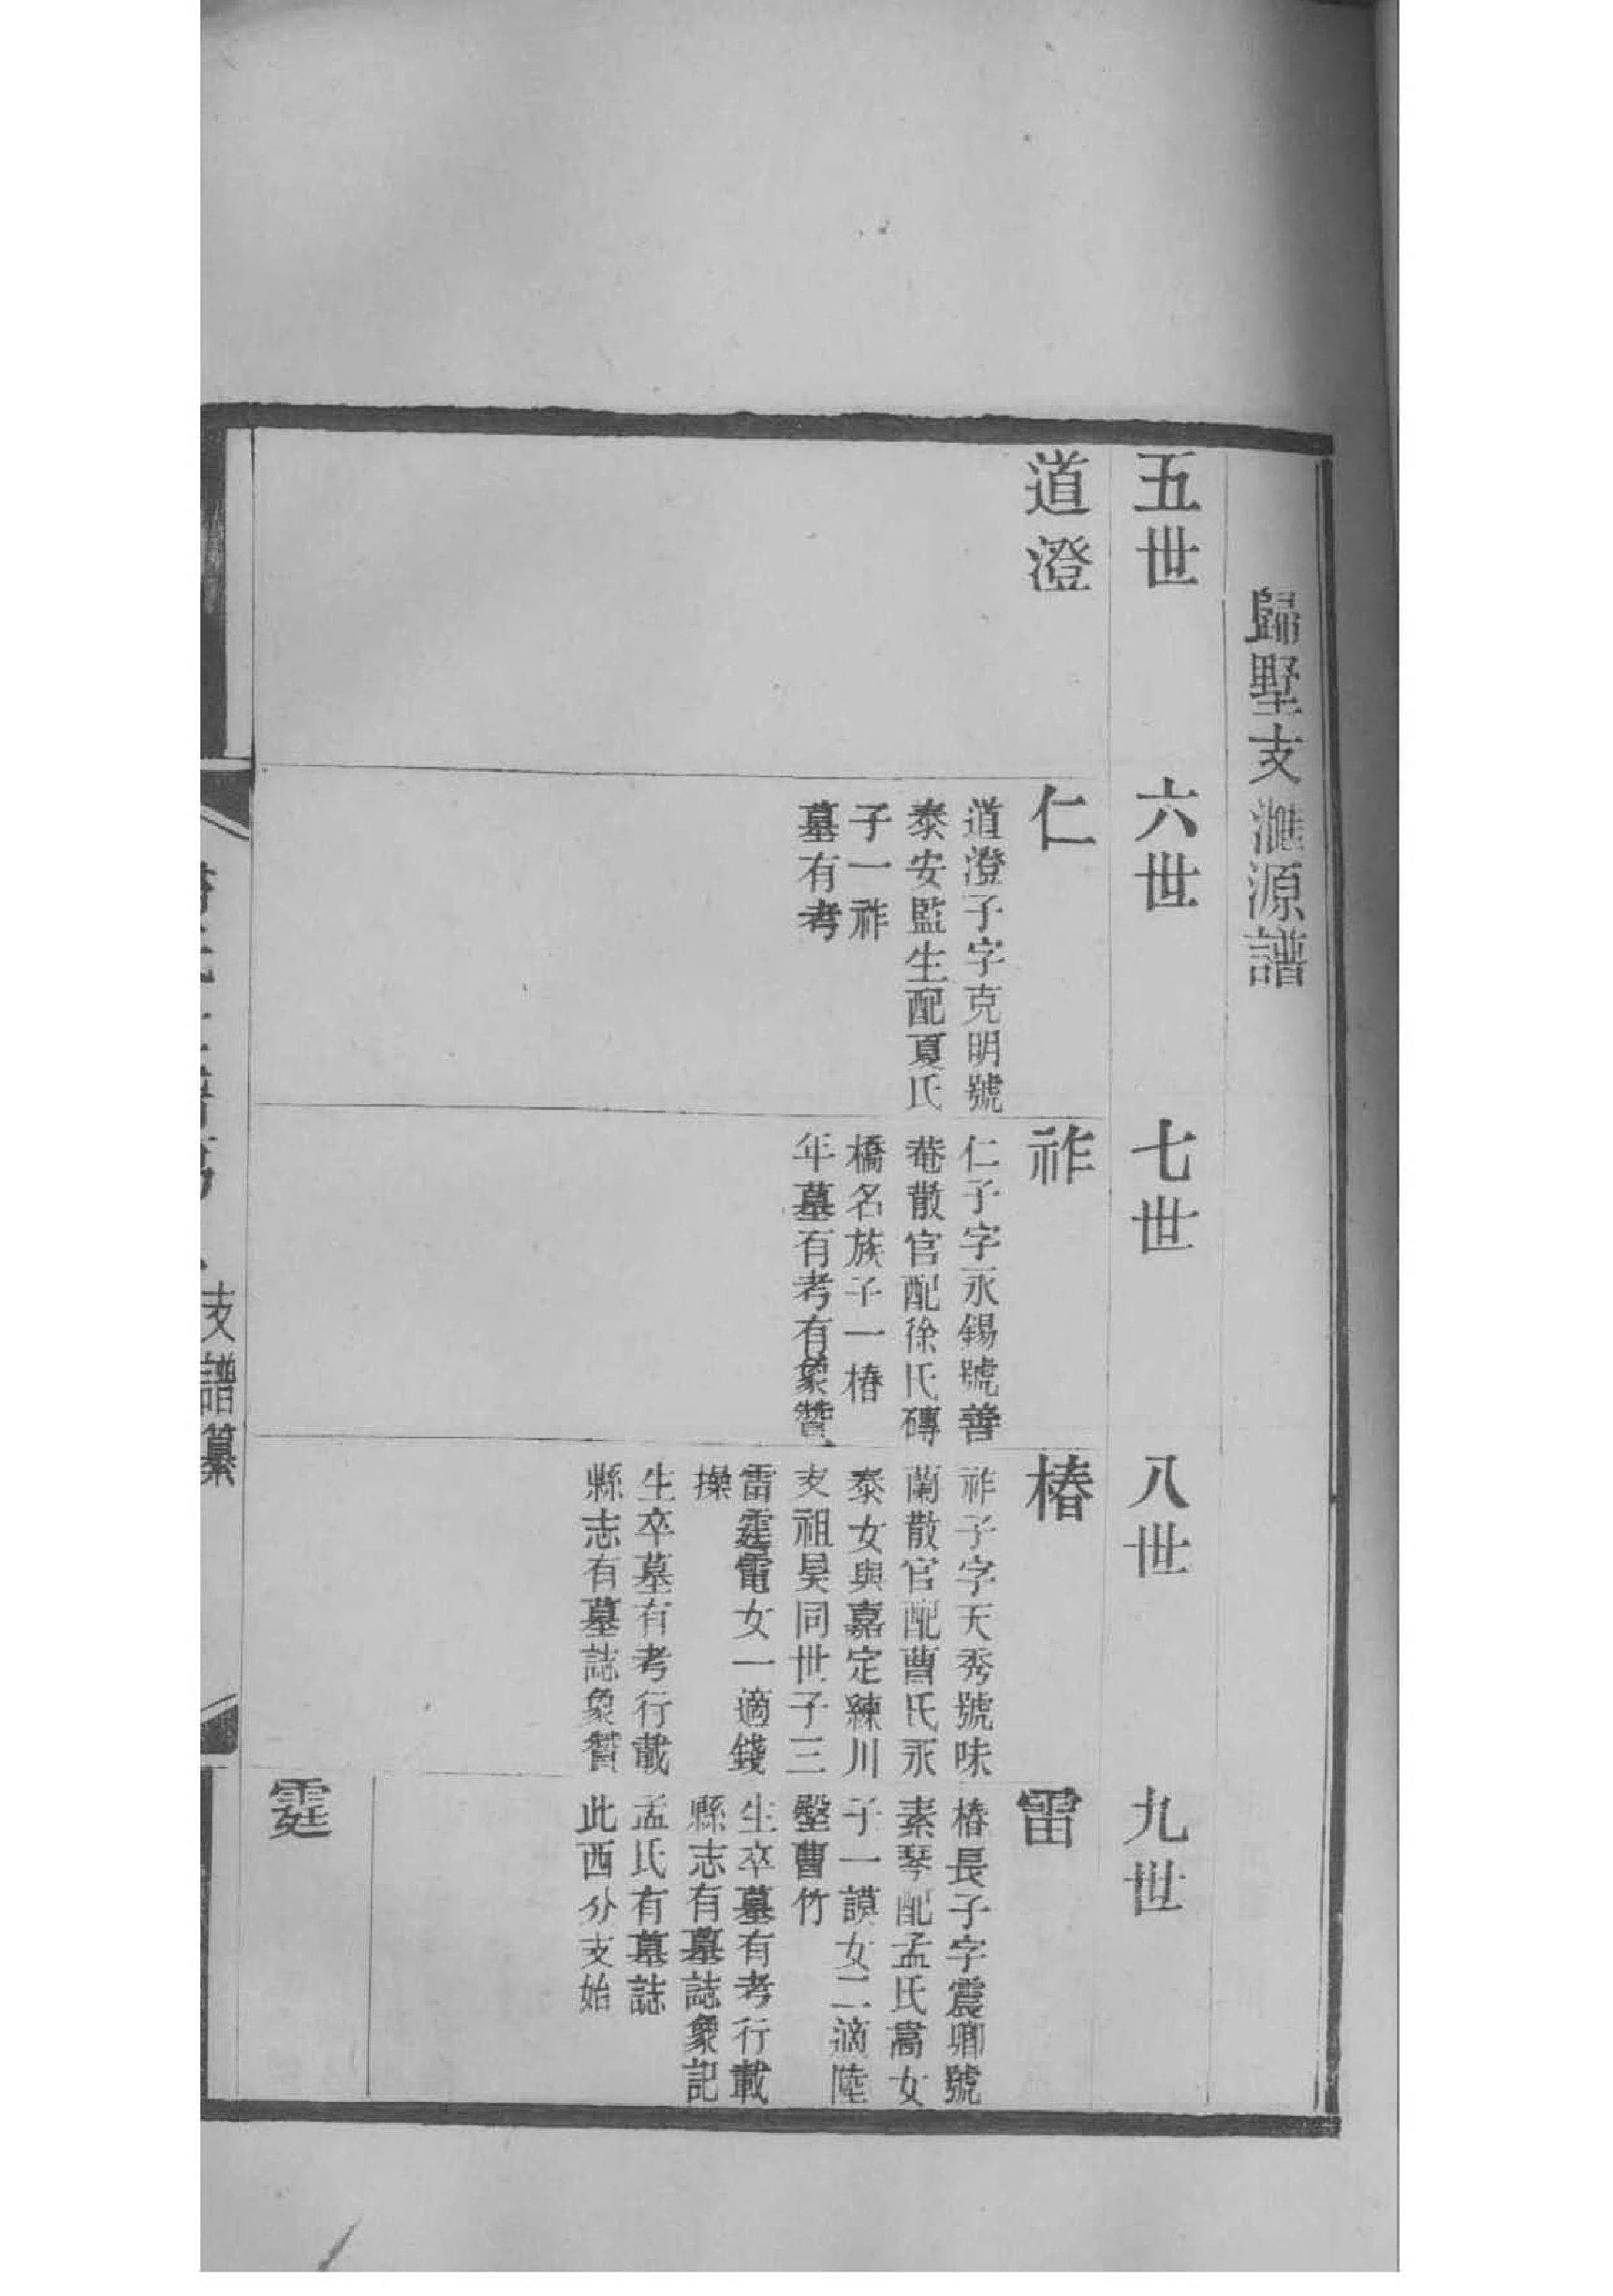 歸墅支滙源譜
五世
六世
七世
八世
九世
道澄
仁
道澄子字克明號
泰安監生配夏氏
子一祚
墓有考
祚
仁子字永錫號善
菴散官配徐氏磚
橋名族子一椿
年墓有考有象贊
椿
祚子字天秀號味
蘭散官配曹氏永
泰女與嘉定練川
支祖昊同世子三
雷霆電女一適錢
操
生卒墓有考行載
縣志有墓誌象贊
雷
椿長子字震卿號
素琴配孟氏嵩女
子一謨女二適陸
壑曹竹
生卒墓有考行載
縣志有墓誌象記
孟氏有墓誌
此西分支始
霆
支譜纂